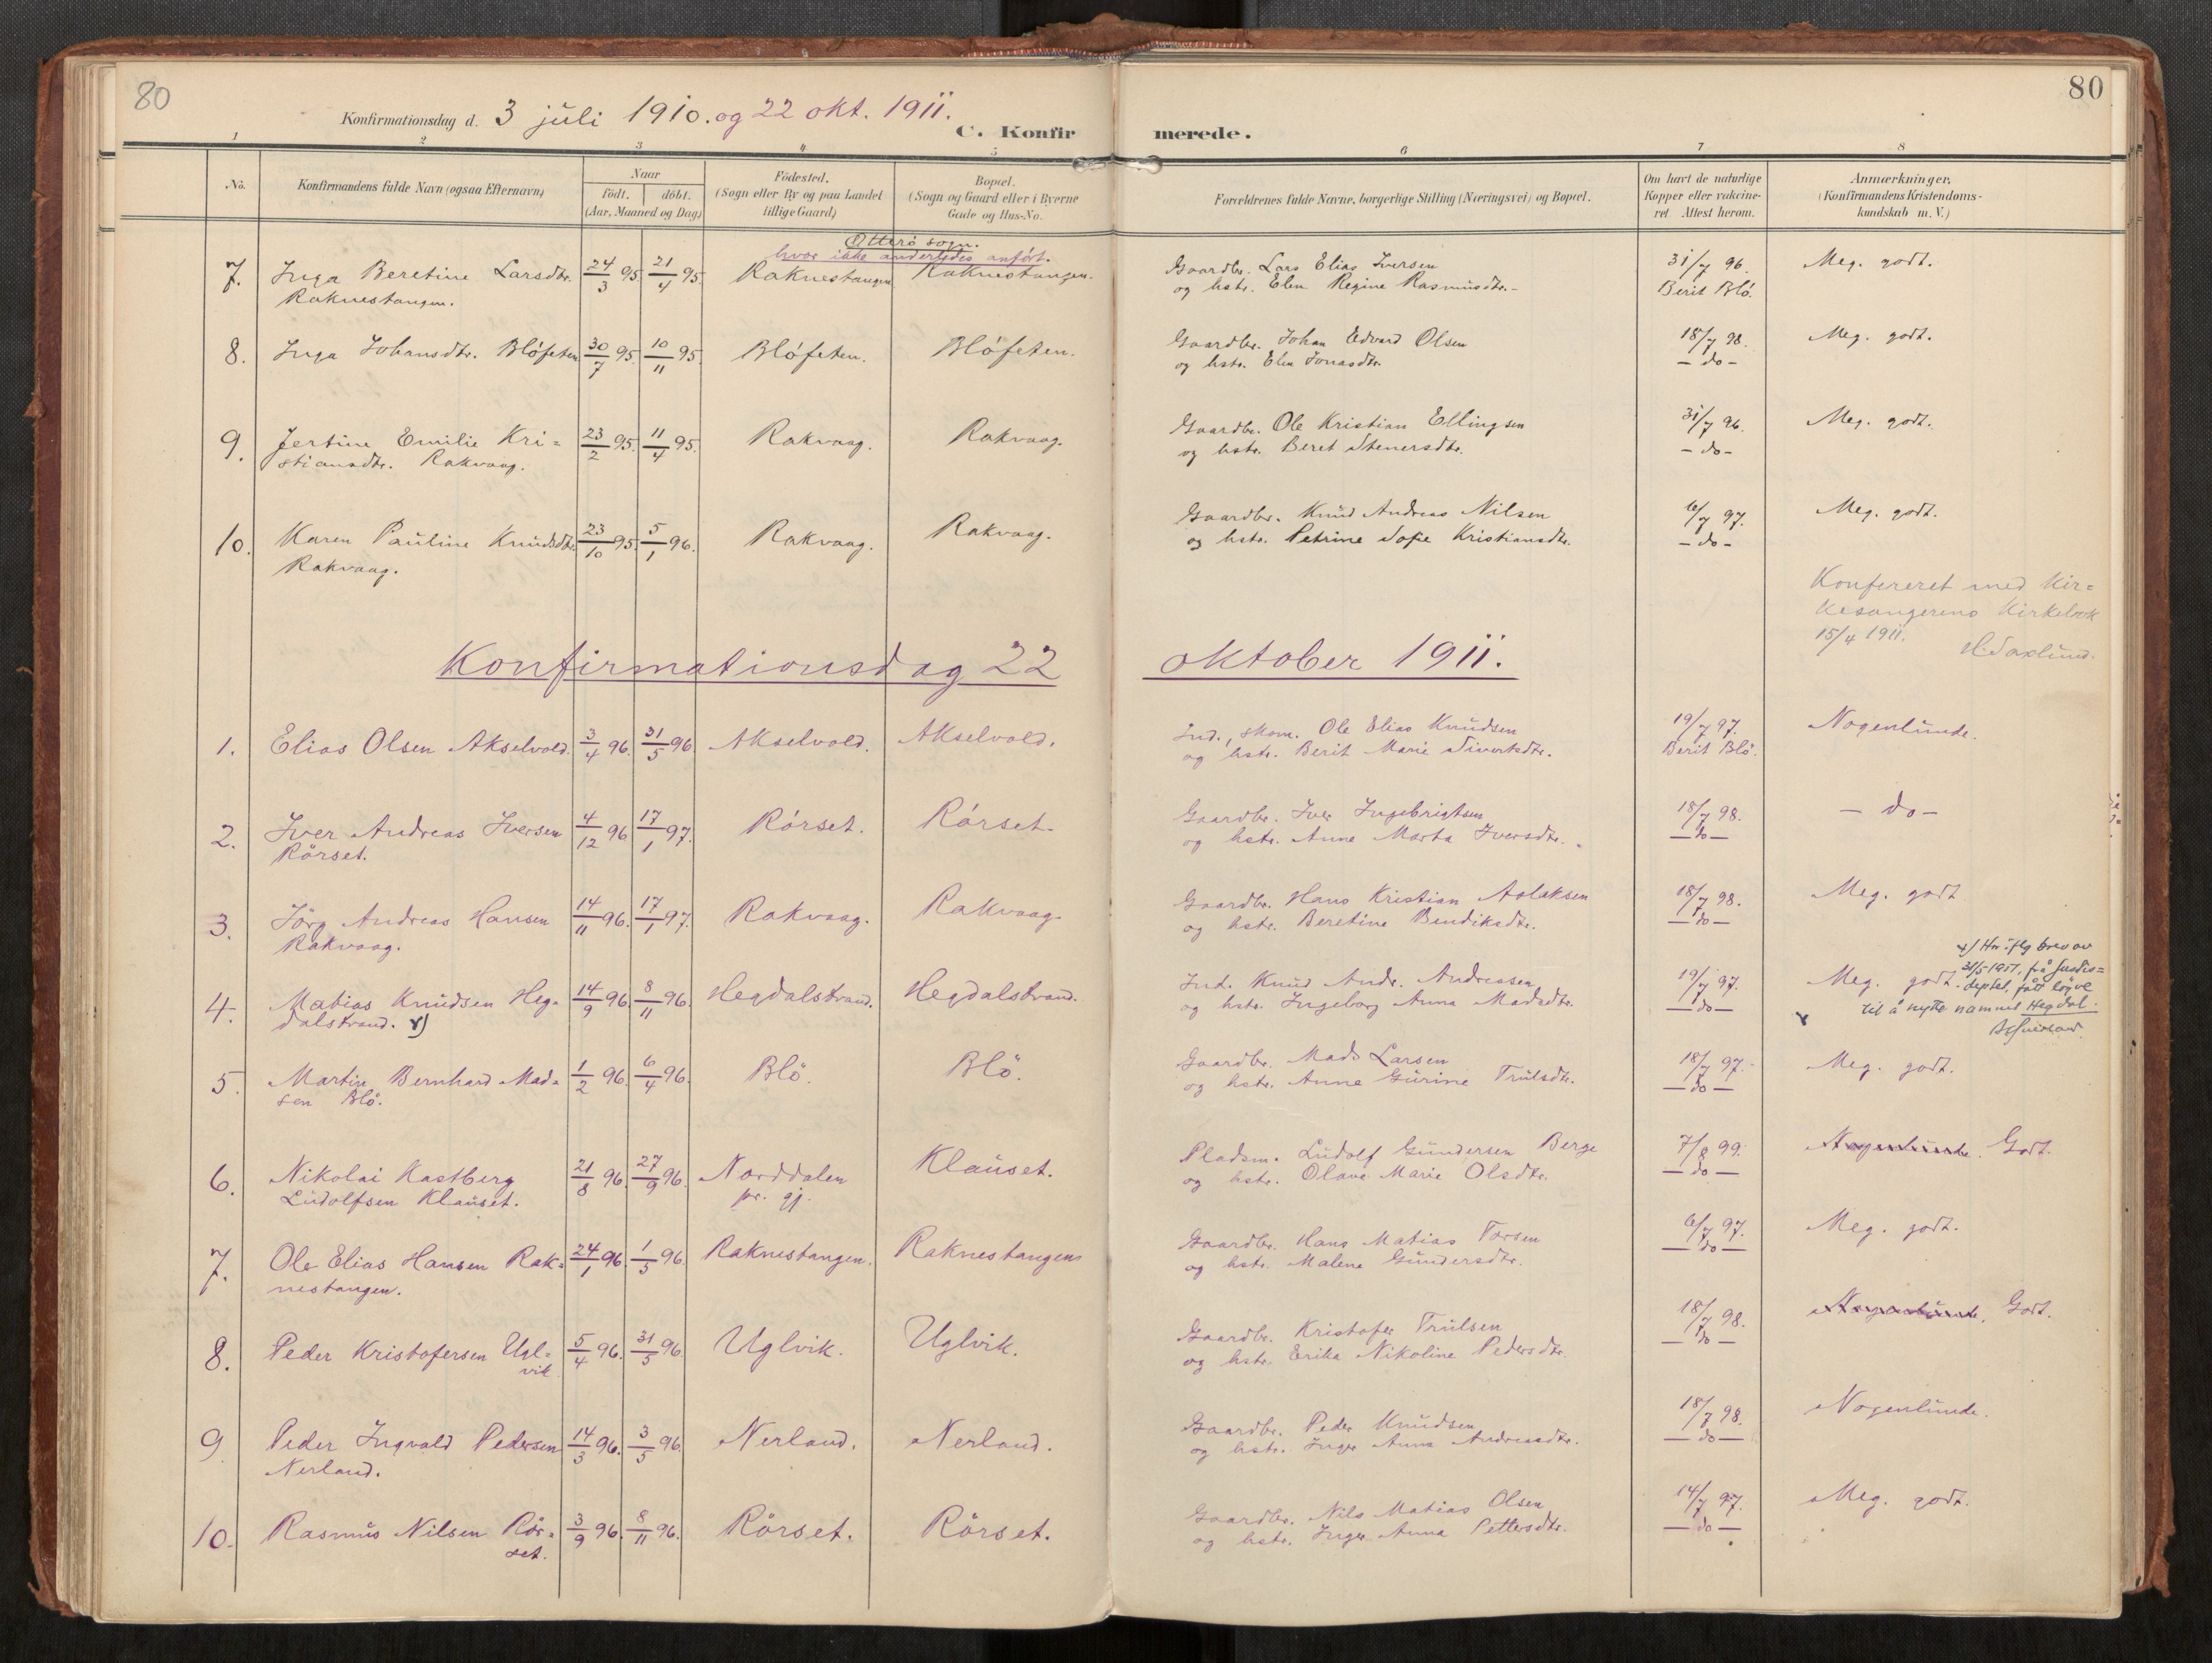 80
80
Konfirmationsdag d. 3 juli 1910. og 22 okt. 1911.
C. Konfir merede.
1 2 3 4 5 6 7 8
No.
Konfirmandens fulde Navn (ogsaa Efternavn)
Naar
födt. döbt.
(Aar, Maaned og Dag)
Födested.
(Sogn eller By og paa Landet
tillige Gaard)
Bopæl.
(Sogn og Gaard eller i Byerne
Gade og Hus-No.
Forældrenes fulde Navne, borgerlige Stilling (Næringsvei) og Bopæl.
Om havt de naturlige
Kopper eller vakcine-
ret Attest herom.
Anmærkninger,
(Konfirmandens Kristendoms-
kundskab m. V.)
Otterö sogn.
hvor ikke anderledes anfört.
7. Inga Beretine Larsdtr. 24/3 95. 21/4 95. Raknestangen Raknestangen. Gaardbr. Lars Elias Iversen 31/7 96. Meg. godt.
Raknestangen. og hstr. Elen Regine Rasmusdtr. - Berit Blö.
8. Inga Johansdtr. Blöfeten 30/7 95. 10/11 95. Blöfeten. Blöfeten. Gaardbr. Johan Edvard Olsen 18/7 98. Meg. godt.
og hstr. Elen Jonasdtr. - do -
9. Jertine Emilie Kri= 23/2 95. 11/4 95. Rakvaag. Rakvaag. Gaardbr. Ole Kristian Ellingsen 31/7 96. Meg. godt.
stiansdtr. Rakvaag. og hstr. Beret Stenersdtr. - do -
10. Karen Pauline Knudsdtr. 23/10 95. 5/1 96. Rakvaag. Rakvaag. Gaardbr. Knud Andreas Nilsen 6/7 97. Meg. godt.
Rakvaag. og hstr. Petrine Sofie Kristiansdtr. - do -
Konfereret med Kir=
kesangerens Kirkebok
15/4 1911. H. Saxlund.
Konfirmationsdag 22 oktober 1911.
1. Elias Olsen Akselvold. 3/4 96. 31/5 96 Akselvold. Akselvold. Ind., skom. Ole Elias Knudsen 19/7 97. Nogenlunde.
og hstr. Berit Marie Sivertsdtr. Berit Blö.
2. Iver Andreas Iversen 4/12 96. 17/1 97. Rörset. Rörset. Gaardbr. Iver Ingebrigtsen 18/7 98. - do -
Rörset. og hstr. Anne Marta Iversdtr. - do -
3. Jörg Andreas Hansen 14/11 96. 17/1 97. Rakvaag. Rakvaag. Gaardbr. Hans Kristian Aslaksen 18/7 98. Meg. godt
Rakvaag. og hstr. Beretine Bendiksdtr. - do -
4. Matias Knudsen Heg= 14/9 96. 8/11 96. Hegdalstrand. Hegdalstrand. Ind. Knud Andr. Andreasen 19/7 97. Meg. godt.
dalstrand. x) og hstr. Ingeborg Anna Madsdtr. - do -
x) Har iflg brev av
31/5-1951, frå Justis=
deptet, fått löyve
til å nytte namnet Hegdal.
5. Martin Bernhard Mad= 1/2 96. 6/4 96. Blö. Blö. Gaardbr. Mads Larsen 18/7 97. Meg. godt.
sen Blö. og hstr. Anne Gurine Trulsdtr. - do -
6. Nikolai Kastberg 21/8 96. 27/9 96. Norddalen Klauset. Pladsm. Ludolf Gundersen Berge 7/8 99. Nogenlunde. Godt.
Ludolfsen Klauset. pr. gj. og hstr. Olave Marie Olsdtr. - do -
7. Ole Elias Hansen Rak= 24/1 96. 1/5 96. Raknestangen. Raknestangen Gaardbr. Hans Matias Torsen 6/7 97. Meg. godt.
nestangen. og hstr. Malene Gundersdtr. - do -
8. Peder Kristofersen Ugl= 5/4 96. 31/5 96. Uglvik. Uglvik. Gaardbr. Kristofer Trulsen 18/7 98. Nogenlunde. Godt.
vik og hstr. Erika Nikoline Pedersdtr. - do -
9. Peder Ingvald Pedersen 14/3 96. 3/5 96. Nerland. Nerland. Gaardbr. Peder Knudsen 18/7 98. Nogenlunde.
Nerland. og hstr. Inger Anna Andreasdtr. - do -
10. Rasmus Nilsen Rör= 3/9 96. 8/11 96. Rörset. Rörset. Gaardbr. Nils Matias Olsen 14/7 97. Meg. godt.
set. og hstr. Inger Anna Pettersdtr. - do -